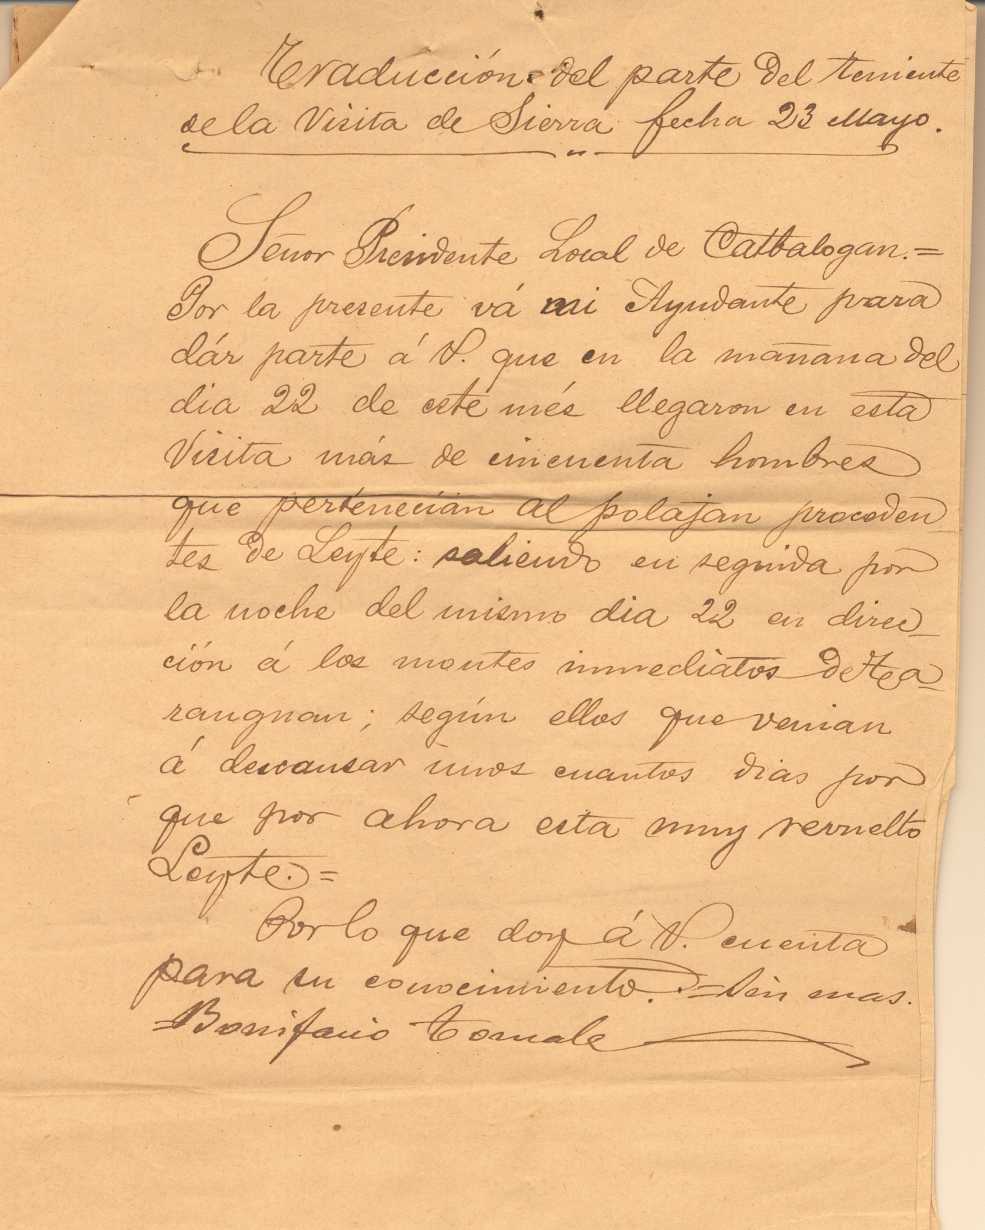 Traducción del parte del teniente
de la Visita de Sierra fecha 23 Mayo.
Señor Presidente Local de Catbalogan.=
Por la presente vá mi Ayudante para
dár parte á V. que en la mañana del
dia 22 de este més llegaron en esta
Visita más de cincuenta hombres
que pertenecián al polajan proceden
tes de Leyte: saliendo en seguida por
la noche del mismo dia 22 en direc-
ción á los montes inmediatos de Ta-
rangnan; según ellos que venian
á descansár unos cuantos dias por
que por ahora esta muy revuelto
Leyte.=
Por lo que doy á V. cuenta
para su conocimiento.=Sin mas.
=Bonifacio Tomale